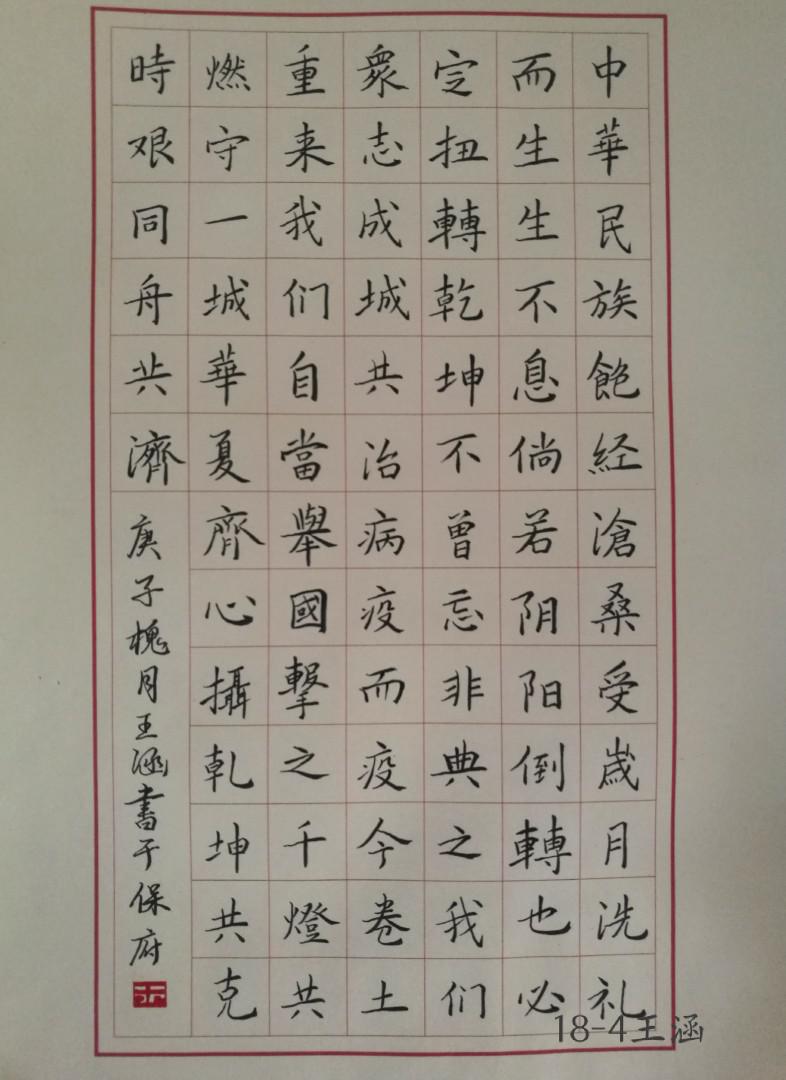 中華民族飽経滄桑受歲月洗礼
而生生不息倘若阴阳倒轉也必
定扭轉乾坤不曾忘非典之我们
衆志成城共治病疫而疫今卷土
重来我们自當舉國擊之千燈共
燃守一城華夏齊心攝乾坤共克
時艰同舟共濟
庚子槐月王涵書于保府
18-4王涵